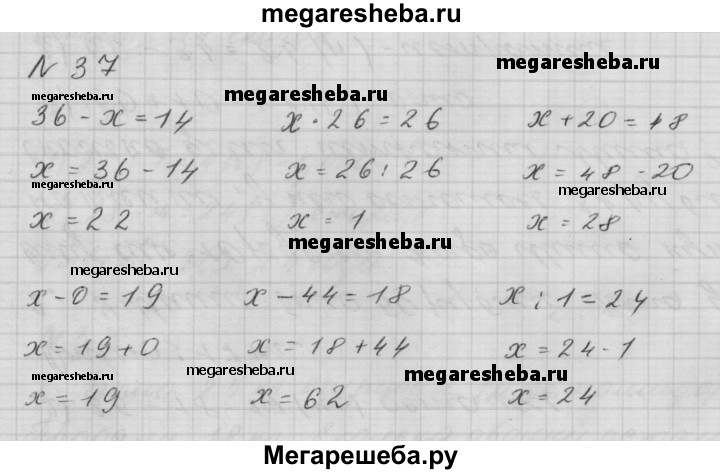 megaresheba.ru
N 37
megaresheba.ru
megaresheba.ru
megaresheba.ru
36 - x = 14
x · 26 = 26
x + 20 = 48
x = 36 - 14
x = 26 : 26
x = 48 - 20
megaresheba.ru
megaresheba.ru
x = 22
x = 1
x = 28
megaresheba.ru
megaresheba.ru
x - 0 = 19
x - 44 = 18
x : 1 = 24
x = 19 + 0
x = 18 + 44
x = 24 · 1
megaresheba.ru
megaresheba.ru
megaresheba.ru
x = 19
x = 62
x = 24
Мегарешеба.ру